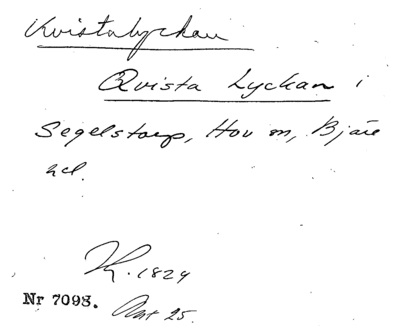 Kvistalyckan
Qvista Lyckan i
Segelstorp, Hov sn, Bjäre
hd.
K. 1824
Nr 7098. Akt 25.